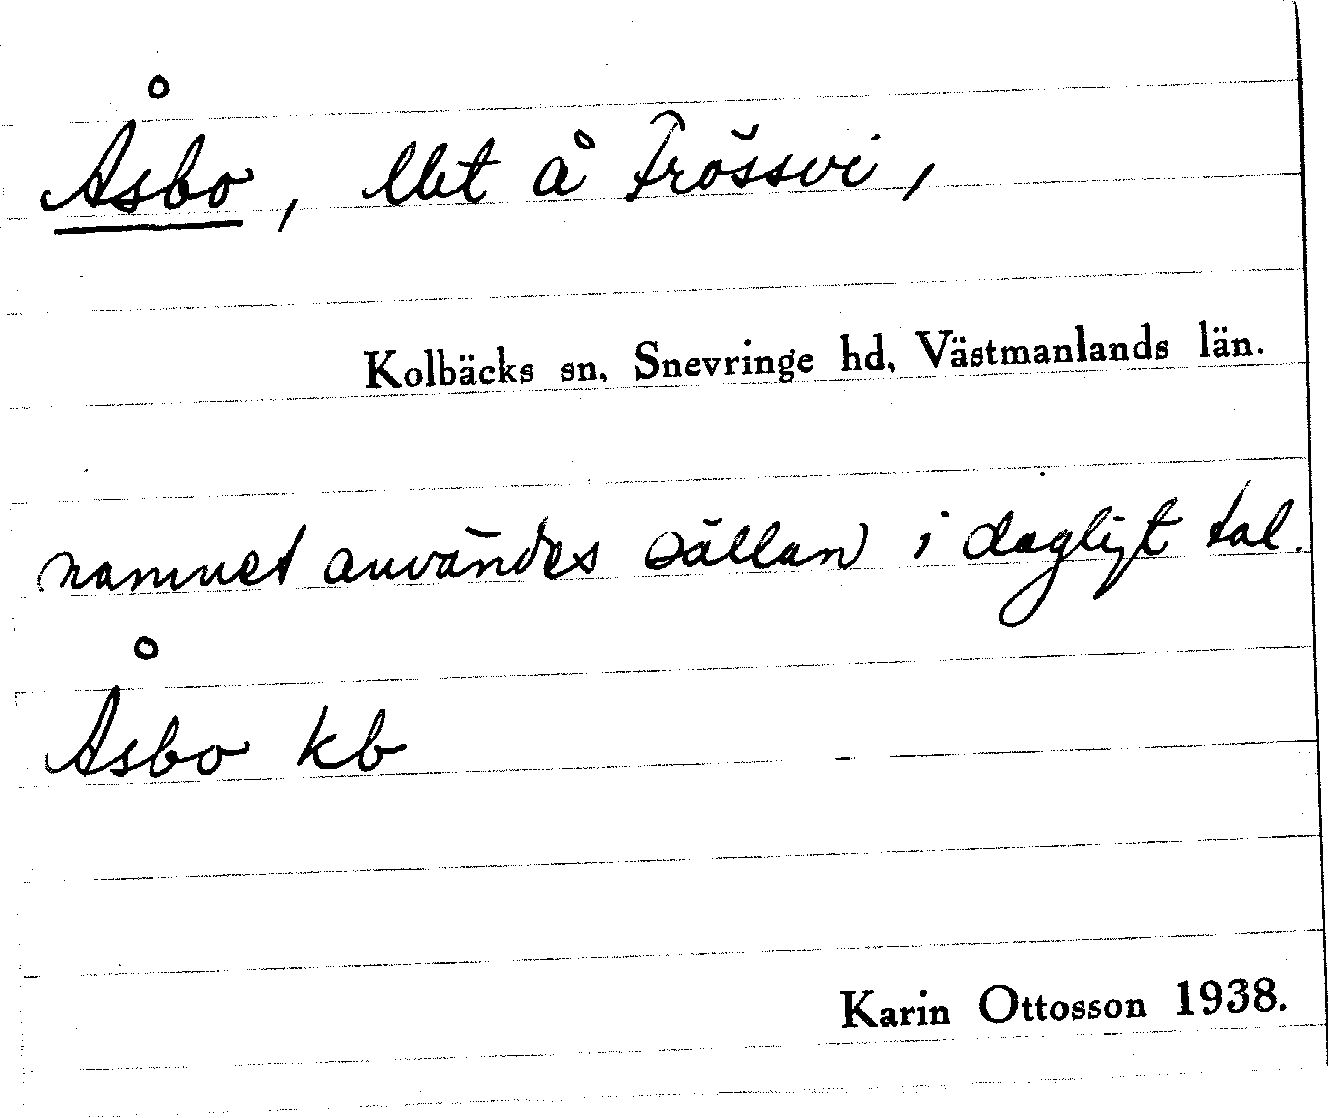 Åsbo, lht å Frössvi,
Kolbäcks sn, Snevringe hd, Västmanlands län.
namnet användes sällan i dagligt tal.
Åsbo kb
Karin Ottosson 1938.